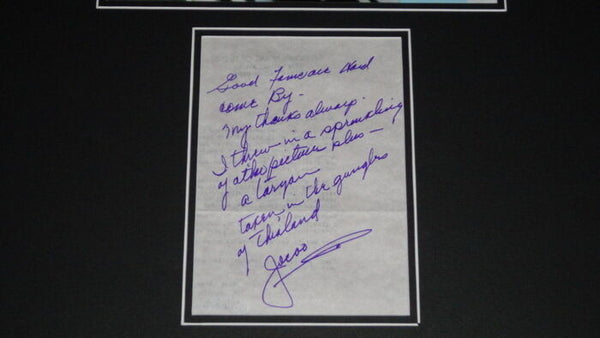 Good Fans are Hard
come By.
My thanks always.
I threw in a sprinkling
of other pictures plus—
a Tarzan
taken in the jungles
of Thialand
Jocoo